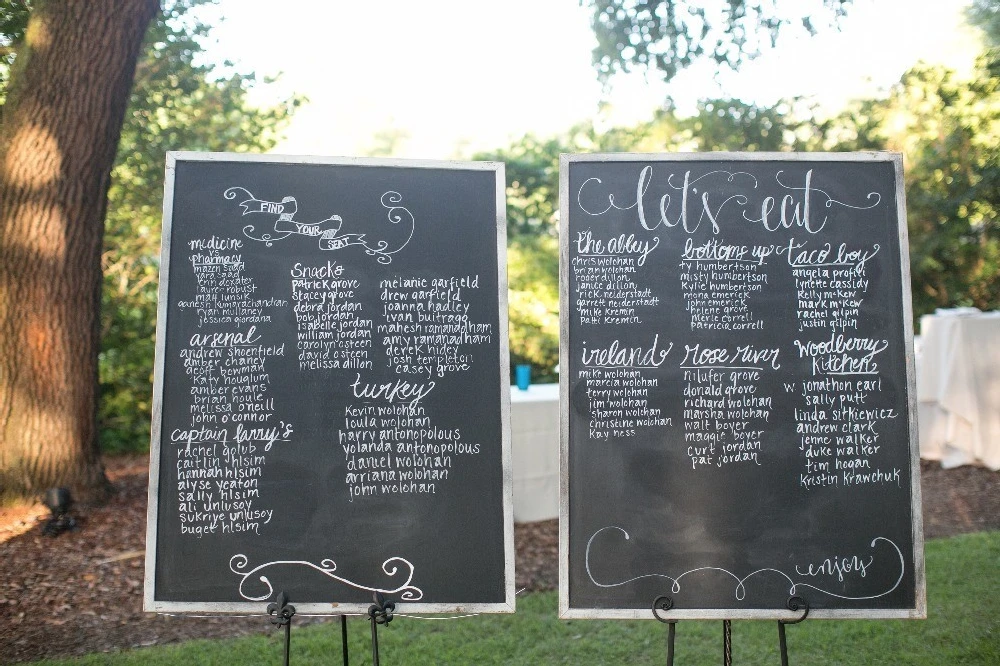 FIND
YOUR
SEAT
medicine
vs
pharmacy
mazen saad
yara saad
erin dexater
laure robust
matt lumsik
ganesh ramayachandran
ryan mullaney
jessica giordana
arsenal
andrew shoenfield
amber chaney
geoff bowman
katy houglum
amber evans
brian houle
melissa o'neill
john o'connor
captain larry's
rachel golub
caitlin hlsim
hannah hlsim
alyse yeaton
sally hlsim
ali unlusoy
sukriye unlusoy
buget hlsim
Snacks
patrick grove
stacey grove
debra jordan
bob jordan
isabelle jordan
william jordan
carolyn osteen
david osteen
melissa dillon
melanie garfield
drew garfield
joanna hadley
ryan buitrago
mahesh ramanadham
amy ramanadham
derek hidey
josh templetoil
casey grove
turkey
kevin wolohan
loula wolohan
harry antonopolous
yolanda antonopolous
daniel wolohan
arriana wolohan
john wolohan
let's eat
the abbey
chris wolohan
brian wolohan
roger dillon
janice dillon
rick neiderstadt
garrett neiderstadt
mike kremin
patti kremin
bottoms up
ty humbertson
misty humbertson
kylie humbertson
mona emerick
john emerick
helene grove
merle correll
patricia correll
taco boy
angela profili
lynette cassidy
kelly mckew
mark mckew
rachel gilpin
justin gilpin
ireland
mike wolohan
marcia wolohan
terry wolohan
jim wolohan
sharon wolohan
christine wolohan
kay ness
rose river
nilufer grove
donald grove
richard wolohan
marsha wolohan
walt boyer
maggie boyer
curt jordan
pat jordan
woodberry
kitchen
w jonathon earl
sally putt
linda sitkiewicz
andrew clark
jenne walker
duke walker
tim hogan
kristin krawchuk
enjoy